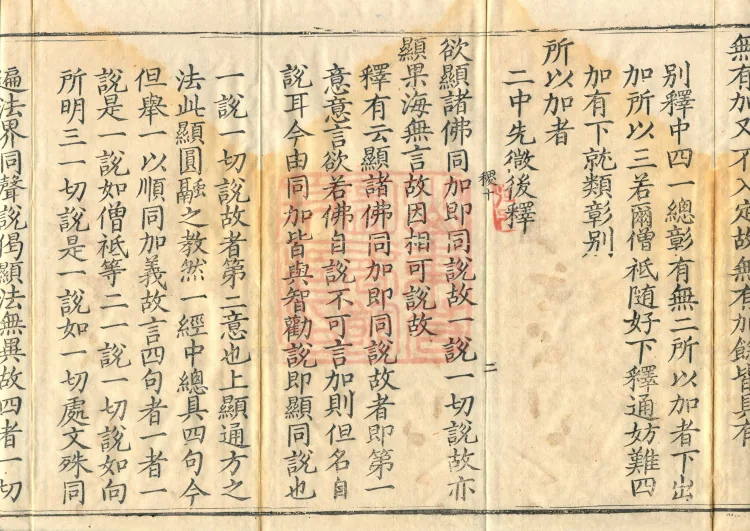 無有加又不入定故無有加餘皆具有
別釋中四一總彰有無二所以加者下出
加所以三若爾僧祇隨好下釋通妨難四
加有下就類彰別
所以加者
二中先徵後釋
稷十
二
欲顯諸佛同加即同說故一說一切說故亦
顯果海無言故因相可說故
釋有云顯諸佛同加即同說故者即第一
意意言欲若佛自說不可言加則但名自
說耳今由同加皆與智勸說即顯同說也
一說一切說故者第二意也上顯通方之
法此顯圓融之教然一經中總具四句今
但舉一以順同加義故言四句者一者一
說是一說如僧祇等二一說一切說如向
所明三一切說是一說如一切處文殊同
遍法界同聲說偈顯法無異故四者一切